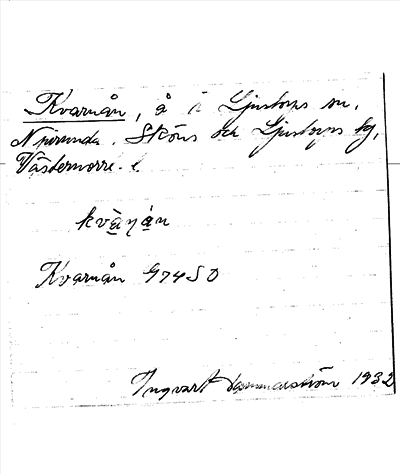 Kvarnån, å i Ljustorps sn,
N. perunda. Sköns och Ljustorps tg,
Västernorrl. l.
kvàṇán
Kvarnån G 74 SO
Ingvart Hammarström 1932